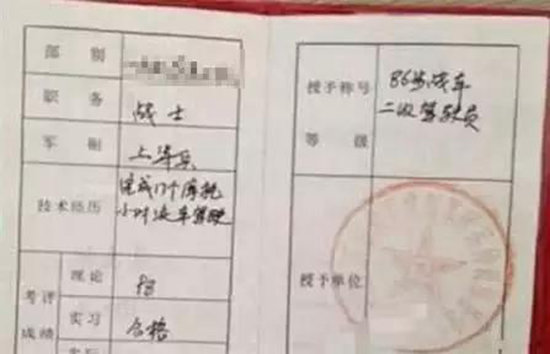 部别
职务
战士
军衔
上等兵
技术经历
完成17个摩托
小时汽车驾驶
考评
成绩
理论
实习
合格
授予称号
等级
86步战车
二级驾驶员
授予单位